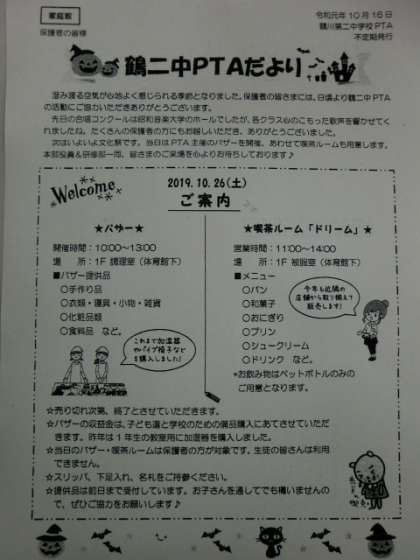 家庭数
令和元年10月16日
保護者の皆様
鶴川第二中学校PTA
不定期発行
鶴二中PTAだより
澄み渡る空気が心地よく感じられる季節となりました。保護者の皆さまには、日頃より鶴二中PTA
の活動にご協力いただきありがとうございます。
先日の合唱コンクールは昭和音楽大学のホールでしたが、各クラス心のこもった歌声を響かせてく
れましたね。たくさんの保護者の方にもお越しいただき、ありがとうございました。
次はいよいよ文化祭です。当日はPTA主催のバザーを開催、あわせて喫茶ルームも用意します。
本部役員&研修部一同、皆さまのご来場を心よりお待ちしております♪
Welcome
2019.10.26(土)
ご案内
★バザー★
開催時間:10:00~13:00
場 所:1F 調理室(体育館下)
■バザー提供品
○手作り品
○衣類・寝具・小物・雑貨
○化粧品類
○食料品 など。
これまで加湿器
やパイプ椅子など
を購入しました!
★喫茶ルーム「ドリーム」★
営業時間:11:00~14:00
場 所:1F 被服室(体育館下)
■メニュー
○パン
○和菓子
○おにぎり
○プリン
○シュークリーム
○ドリンク など。
*お飲み物はペットボトルのみの
ご用意となります。
今年も近隣の
店舗から取り揃えて
販売します!
☆売り切れ次第、終了とさせていただきます。
☆バザーの収益金は、子ども達と学校のための備品購入にあてさせていただき
ます。昨年は1年生の教室用に加湿器を購入しました。
☆当日のバザー・喫茶ルームは保護者の方が対象です。生徒の皆さんは利用
できません。
☆スリッパ、下足入れ、名札をご持参ください。
☆提供品は前日まで受付しています。お子さんを通してでも構いませんの
で、ぜひご協力をお願いします♪